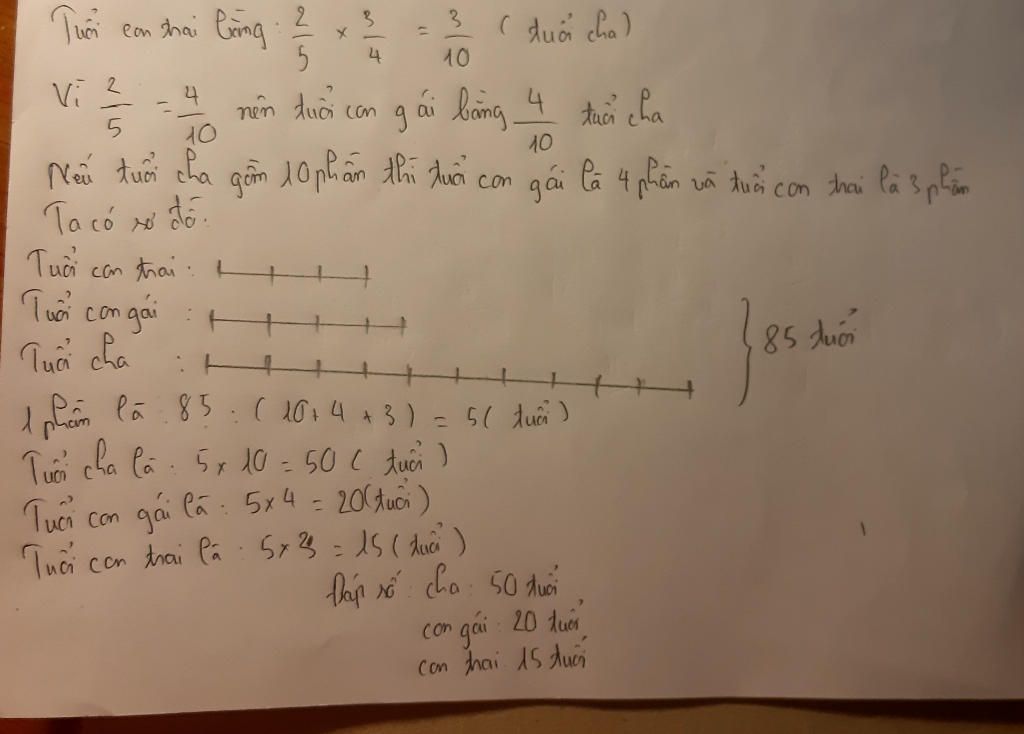 Tuổi con trai bằng: 2/5 × 3/4 = 3/10 (tuổi cha)
Vì 2/5 = 4/10 nên tuổi con gái bằng 4/10 tuổi cha
Nếu tuổi cha gồm 10 phần thì tuổi con gái là 4 phần và tuổi con trai là 3 phần
Ta có sơ đồ:
Tuổi con trai:
Tuổi con gái:
Tuổi cha:
85 tuổi
1 phần là: 85 : (10 + 4 + 3) = 5 (tuổi)
Tuổi cha là: 5 × 10 = 50 (tuổi)
Tuổi con gái là: 5 × 4 = 20 (tuổi)
Tuổi con trai là: 5 × 3 = 15 (tuổi)
Đáp số: cha: 50 tuổi
con gái: 20 tuổi
con trai 15 tuổi